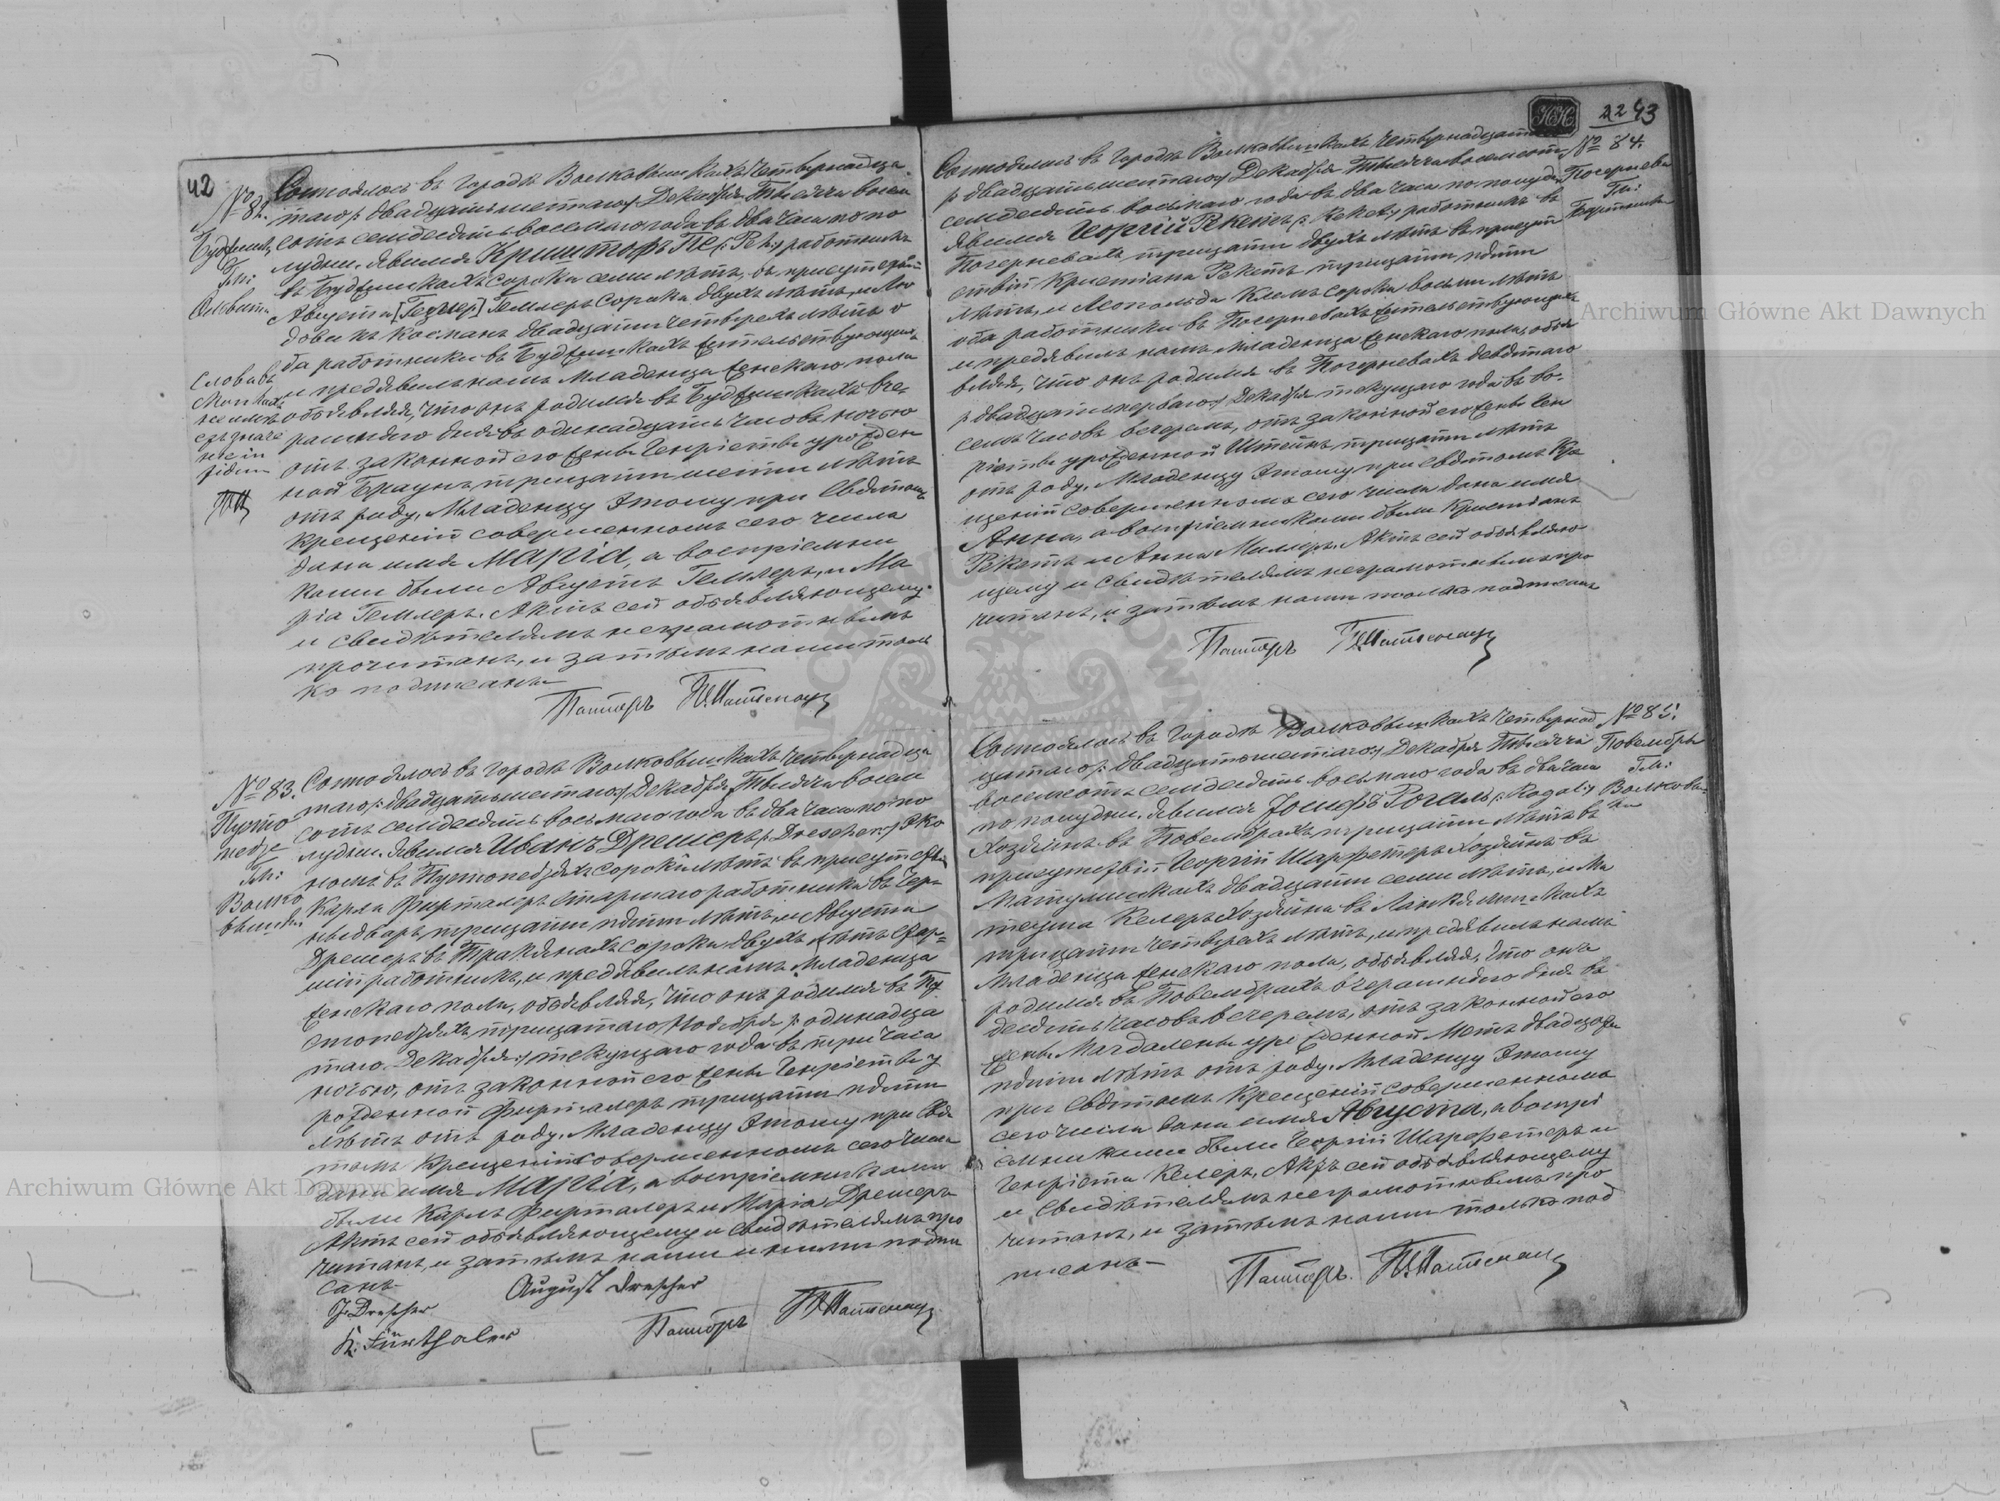 42
№ 82.
Будвишки
Гм:
Ольвита
Состоялось въ городѣ Волковышкахъ Четырнадца
таго /: двадцать шестаго :/ Декабря Тысяча восем
сотъ семдесятъ восьмаго года въ два часа по по
лудни. Явился Криштофъ Пе /: Peh :/ работникъ
въ сорока семи лѣтъ, въ присутствіи
Августа [Гезлер] Гемлеръ сорока двухъ лѣтъ, и Лю
двика Косманъ двадцати четырехъ лѣтъ о
ба работники въ жительствующихъ
и предъявилъ намъ Младенца женскаго пола
объявляя, что онъ родился въ вче
рашняго дня въ одинадцать часовъ ночью
отъ законной его жены Генріетты урожден
ной Браунъ тридцати шести лѣтъ
отъ роду. Младенцу этому при Святомъ
Крещеніи совершенномъ сего числа
дано имя Марія, а воспріемни
ками были Августъ Гемлеръ, и Ма
рія Гемлеръ. Актъ сей объявляющему
и свидѣтелямъ неграмотнымъ
прочитанъ, и затѣмъ нами толь
ко подписанъ
Пасторъ
№ 83.
Пусто
педзе
Гм:
Волко
вышки
Состоялось въ городѣ Волковышкахъ Четырнадца
таго /: двадцать шестаго :/ Декабря Тысяча восем
сотъ семдесятъ восьмаго года въ два часа по по
лудни. Явился Иванъ Дрешеръ /: Drescher :/ Эко
номъ въ Пустопедзяхъ сорока лѣтъ въ присутствіи
Карла Фирталеръ старшаго работника въ Чер
тридцати пяти лѣтъ, и Августа
Дрешеръ въ Тракянахъ сорока двухъ лѣтъ стар
шій работникъ, и предъявилъ намъ Младенца
женскаго пола, объявляя, что онъ родился въ Пу
стопедзяхъ тридцатаго Ноября /: одинадца
таго Декабря :/ текущаго года въ три часа
ночью, отъ законной его жены Генріетты у
рожденной Фирталеръ тридцати пяти
лѣтъ отъ роду. Младенцу этому при Свя
томъ Крещеніи совершенномъ сего числа
дано имя Марія, а воспріемниками
были Карлъ Фирталеръ и Марія Дрешеръ
Актъ сей объявляющему и свидѣтелямъ про
читанъ, и затѣмъ нами и ними подпи
санъ
J. Drescher
August Drescher
K. Fürthaler
Пасторъ
43
№ 84.
Погерневе
Гм:
Состоялось въ городѣ Волковышкахъ Четырнадцатаго
/: двадцать шестаго :/ Декабря Тысяча восемсотъ
семдесятъ восьмаго года въ два часа по полудни
Явился Георгій Рекетъ /: Reket :/ работникъ въ
Погерневахъ тридцати двухъ лѣтъ въ присут
ствіи Христіана Рекетъ тридцати пяти
лѣтъ, и Леопольда Клемъ сорока восьми лѣтъ
оба работники въ Погерневахъ жительствующихъ
и предъявилъ намъ Младенца женскаго пола, объя
вляя, что онъ родился въ Погерневахъ девятаго
/: двадцать перваго :/ Декабря текущаго года въ во
семь часовъ вечеромъ, отъ законной его жены Ген
ріетты урожденной Штейнъ тридцати лѣтъ
отъ роду. Младенцу этому при Святомъ Кре
щеніи совершенномъ сего числа дано имя
Анна, а воспріемниками были Христіанъ
Рекетъ и Анна Миллеръ. Актъ сей объявляю
щему и свидѣтелямъ неграмотнымъ про
читанъ, и затѣмъ нами только подписанъ
Пасторъ
№ 85.
Повембры
Гм:
Состоялось въ городѣ Волковышкахъ Четырнад
цатаго /: двадцать шестаго :/ Декабря Тысяча
восемсотъ семдесятъ восьмаго года въ два часа
по полудни. Явился Іосифъ Рогаль /: Rogal :/
Хозяинъ въ Повембрахъ тридцати лѣтъ въ
присутствіи Георгій Шарфетеръ Хозяинъ въ
Матулишкахъ двадцати семи лѣтъ, и Ма
теуша Келеръ Хозяина въ
тридцати четырехъ лѣтъ, и предъявилъ намъ
Младенца женскаго пола, объявляя, что онъ
родился въ Повембрахъ вчерашняго дня въ
десять часовъ вечеромъ, отъ законной его
жены Магдалены урожденной Метъ двадцати
пяти лѣтъ отъ роду. Младенцу этому
при Святомъ Крещеніи совершенномъ
сего числа дано имя Августа, а воспрі
емниками были Георгій Шарфетеръ и
Генріета Келеръ. Актъ сей объявляющему
и свидѣтелямъ неграмотнымъ про
читанъ, и затѣмъ нами только под
писанъ
Пасторъ
Archiwum Główne Akt Dawnych
Archiwum Główne Akt Dawnych